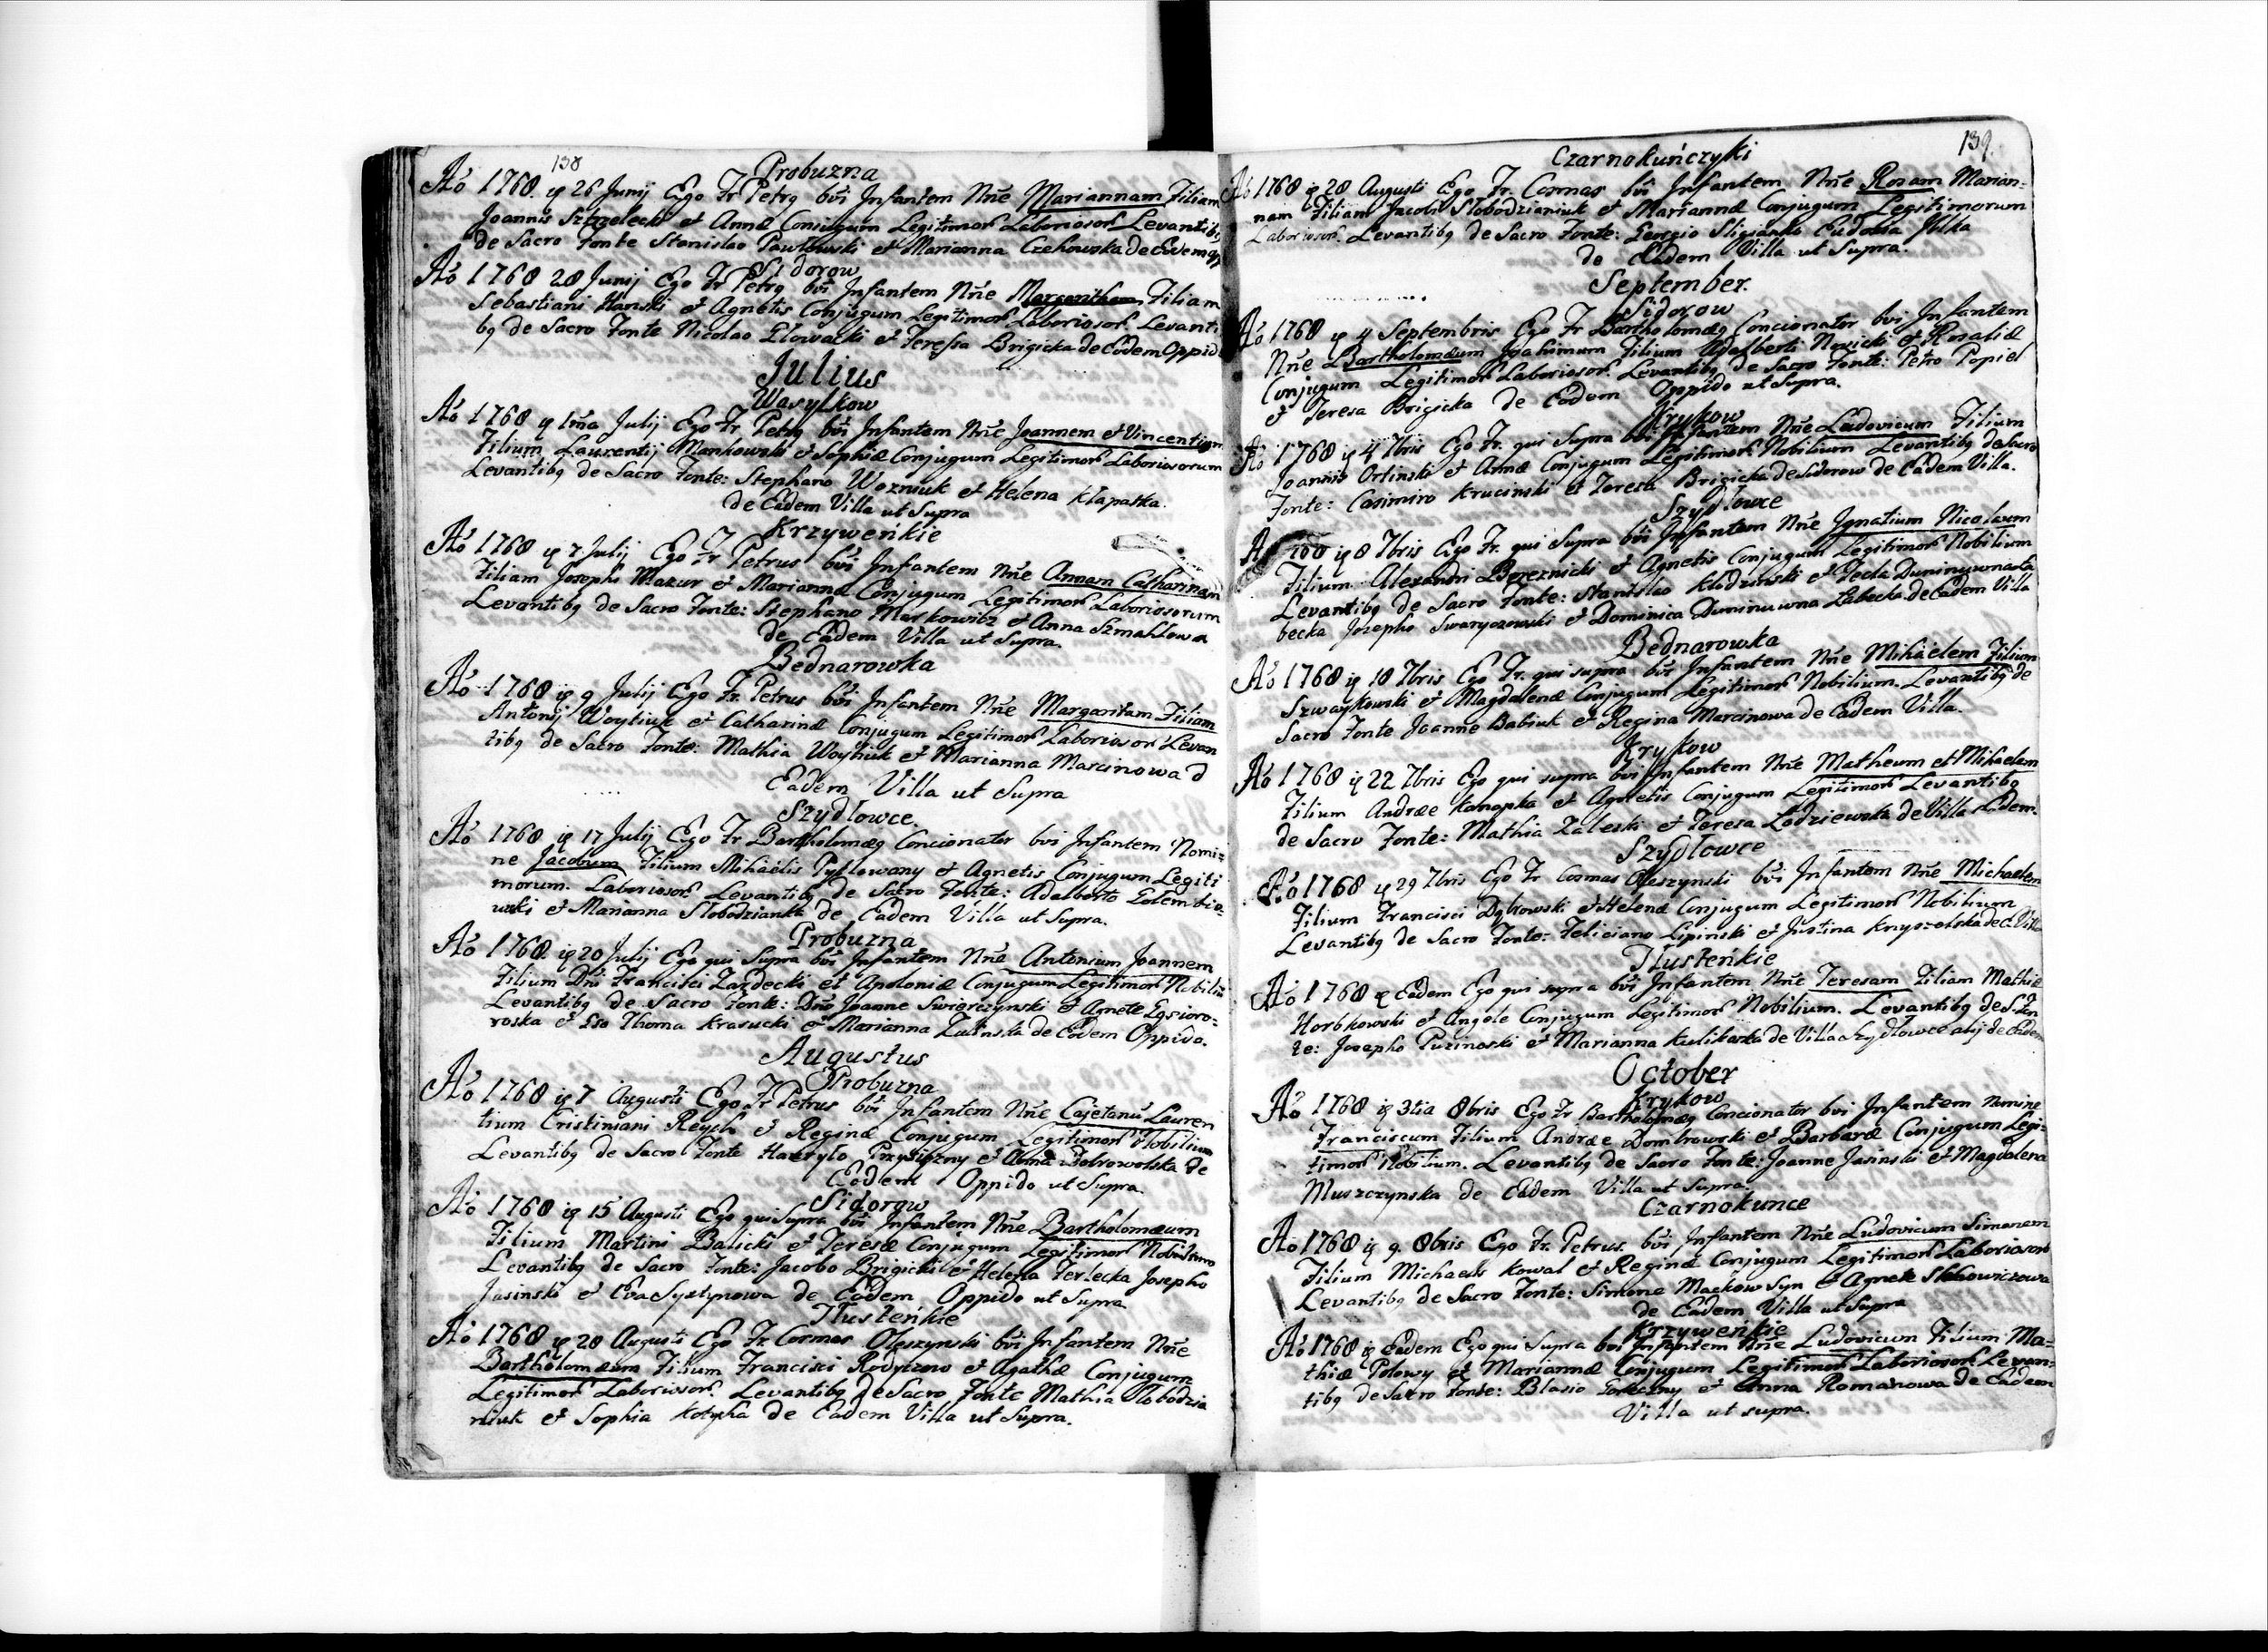 138
Probuzna
Ao 1768. ig 26 Junij Ego Fr Petrg bvi Infantem Nne Mariannam Filiam
Joannis Sztzelecki et Annæ Coniugum Legitimor Laboriosor Levantibg
de Sacro Fonte Stanislao Pawłowski et Marianna Czehowska de Eodem
Sidorow
Ao 1768 28 Junij Ego Fr Petrg bvi Infantem Nne Filiam
Sebastiani Hanski et Agnetis Conjugum Legitimor Laboriosor Levanti
bg de Sacro Fonte Nicolao Głowacki et Teressa Brigicka de Eodem Oppid
Julius
Wasylkow
Ao 1768 ig 1ma Julij Ego Fr Petrg bvi Infantem Nne Joannem et Vincentium
Filium Laurentij Mankowski et Sophiæ Conjugum Legitimor Laboriosorum
Levantibg de Sacro Fonte: Stephano Wozniuk et Helena Kłapatka.
de Eadem Villa ut Supra
Krzyweńkie
Ao 1768 ig 7 Julij Ego Fr Petrus bvi Infantem Nne Annam Catharinam
Filiam Josephi Mazur et Mariannæ Conjugum Legitimor Laboriosorum
Levantibg de Sacro Fonte: Stephano Markowicz et Anna Szmahlowa
de Eadem Villa ut Supra.
Bednarowka
Ao 1768 ig 9 Julij Ego Fr Petrus bvi Infantem Nne Margaritam Filiam
Antonij Woytiuk et Catharinæ Conjugum Legitimor Laboriosor Levan
tibg de Sacro Fonte: Mathia Woytiuk et Marianna Marcinowa d
Eadem Villa ut Supra
Szydłowce.
Ao 1768 ig 17 Julij Ego Fr Bartholomæg Concionator bvi Infantem Nomi=
ne Jacobum Filium Mihaelis Pytlowany et Agnetis Conjugum Legiti
morum. Laboriosor Levantibg de Sacro Fonte: Adalberto Gołembio=
wski et Marianna Słobodzianka de Eadem Villa ut Supra.
Probuzna
Ao 1768. ig 20 Julij Ego qui Supra bvi Infantem Nne Antonium Joannem
Filium Dni Francisci Zardecki et Apoloniæ Conjugum Legitimor Nobiliu
Levantibg de Sacro Fonte: Dno Joanne Swierczynski et Agnete
et Thoma Krasucki et Marianna Zulinska de Eodem Oppido.
Augustus
Probuzna
Ao 1768 ig 7 Augusti Ego Fr Petrus bvi Infantem Nne Cajetanu Lauren
tium Cristiniani Reych et Reginæ Conjugum Legitimor Nobilium
Levantibg de Sacro Fonte Hawryło Przysiężny et Anna Dobrowolska de
Eodem Oppido ut Supra.
Sidorow
Ao 1768 ig 15 Augusti Ego qui Supra bvi Infantem Nne Bartholomæum
Filium Martini Balicki et Teresæ Conjugum Legitimor Nobilium
Levantibg de Sacro Fonte: Jacobo Brigicki et Helena Terlecka Josepho
Jasinski et Eva Systynowa de Eodem Oppido ut Supra
Tłusteńkie
Ao 1768 ig 28 Augusti Ego Fr Cosmas Oleszynski bvi Infantem Nne
Bartholomæum Filium Francisci Rodyczow et Agathæ Conjugum
Legitimor Laboriosor Levantibg de Sacro Fonte Mathia Słobodzia
niuk et Sophia Kotycha de Eadem Villa ut Supra.
139.
Czarnokuńczyki
Ao 1768 ig 28 Augusti Ego Fr. Cosmas bvi Infantem Nne Rosam Marian=
nam Filiam Jacobi Słobodzianiuk et Mariannæ Conjugum Legitimorum
Laboriosor. Levantibg de Sacro Fonte: Georgio Eudocia
de Eadem Villa ut Supra.
September.
Sidorow
Ao 1768 ig 4 Septembris Ego Fr Bartholomæg Concionator bvi Infantem
Nne Bartholomæum Joahimum Filium Adalberti Nosicki et Rosaliæ
Conjugum Legitimor Laboriosor. Levantibg de Sacro Fonte: Petro Popiel
et Teresa Brigicka de Eodem Oppido ut Supra.
Krykow
Ao 1768 ig 4 7bris Ego Fr. qui Supra bvi Infantem Nne Ludovicum Filium
Joannis Orlinski et Annæ Conjugum Legitimor Nobilium Levantibg de Sacro
Fonte: Casimiro Krucinski et Teresa Brigicka de Sidorow de Eadem Villa.
Szydłowce
ig 8 7bris Ego Fr. qui Supra bvi Infantem Nne Ignatium Nicolaum
Filium Alexandri Bereznicki et Agnetis Conjugum Legitimor Nobilium
Levantibg de Sacro Fonte: Stanislao Kłodzinski et Tecla Duninuwna La
becka Josepho Swaryczowski et Dominica Duninuwna Labecka de Eadem Villa
Bednarowka
Ao 1768 ig 18 7bris Ego Fr. qui supra bvi Infantem Nne Mihaelem Filium
Szwaykowski et Magdalenæ Conjugum Legitimor Nobilium. Levantibg de
Sacro Fonte Joanne Babiuk et Regina Marcinowa de Eadem Villa.
Krykow
Ao 1768 ig 22 7bris Ego qui supra bvi Infantem Nne Matheum et Mihaelem
Filium Andræe Konopka et Agnetis Conjugum Legitimor Levantibg
de Sacro Fonte: Mathia Zaleski et Teresa Lodziewska de Villa Eadem.
Szydłowce
Ao 1768 ig 29 7bris Ego Fr Cosmas Oleszynski bvi Infantem Nne Michaelem
Filium Francisci Dąbrowski et Helenæ Conjugum Legitimor Nobilium
Levantibg de Sacro Fonte: Feliciano Lipinski et Justina de E. Villa
Tłusteńkie
Ao 1768 ig Eadem Ego qui supra bvi Infantem Nne Teresam Filiam Mathiæ
Horbkowski et Angele Conjugum Legitimor Nobilium. Levantibg de S. Fon
te: Josepho Puzinoski et Marianna Kulikoska de Villa Szydłowce alij de Eadem
October
Krykow
Ao 1768 ig 3tia 8bris Ego Fr Bartholomæg Concionator bvi Infantem Nomine
Franciscum Filium Andræe Dombrowski et Barbaræ Conjugum Legi=
timor Nobilium. Levantibg de Sacro Fonte: Joanne Jasinski et Magdalena
Muszczynska de Eadem Villa ut Supra.
Czarnokunce
Ao 1768 ig 9. 8bris Ego Fr. Petrus. bvi Infantem Nne Ludovicum Simonem
Filium Michaelis Kowal et Reginæ Conjugum Legitimor Laboriosor
Levantibg de Sacro Fonte: Simone Maćkow Syn et Agnete
de Eadem Villa ut Supra
Krzyweńkie
Ao 1768 ig Eadem Ego qui Supra bvi Infantem Nne Ludovicum Filium Ma=
thiæ Polowy et Mariannæ Conjugum Legitimor Laboriosor Levan=
tibg de Sacro Fonte: Blasio et Anna Romanowa de Eadem
Villa ut supra.